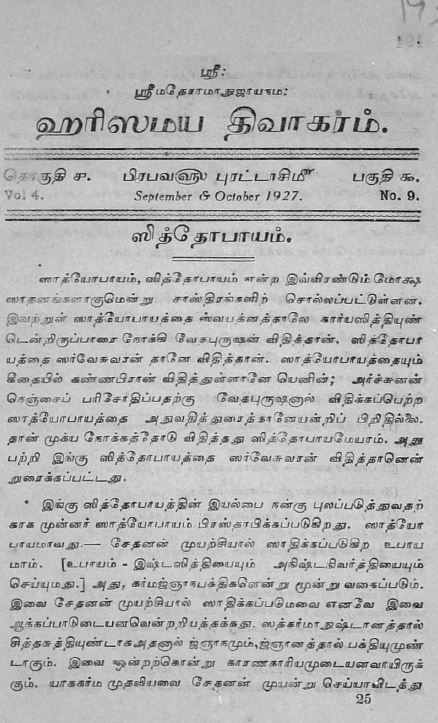 ஸ்ரீ:
ஸ்ரீமதேராமாநுஜாயநம:
ஹரிஸமய திவாகரம்.
தொகுதி ௪. பிரபவ௵ புரட்டாசி௴ பகுதி ௯.
Vol 4. September & October 1927. No. 9.
ஸித்தோபாயம்.
ஸாத்யோபாயம், ஸித்தோபாயம் என்ற இவ்விரண்டும் மோக்ஷ
ஸாதனங்களாகுமென்று சாஸ்திரங்களிற் சொல்லப்பட்டுள்ளன.
இவற்றுள் ஸாத்யோபாயத்தை ஸ்வயத்னத்தாலே கார்யஸித்தியுண்
டென்றிருப்பாரை நோக்கி வேதபுருஷன் விதித்தான். ஸித்தோபா
யத்தை ஸர்வேசுவரன் தானே விதித்தான். ஸாத்யோபாயத்தையும்
கீதையில் கண்ணபிரான் விதித்துள்ளானே யெனின்; அர்ச்சுனன்
நெஞ்சைப் பரிசோதிப்பதற்கு வேதபுருஷனால் விதிக்கப்பெற்ற
ஸாத்யோபாயத்தை அநுவதித்துரைத்தானேயன்றிப் பிறிதில்லை.
தான் முக்ய நோக்கத்தோடு விதித்தது ஸித்தோபாயமேயாம். அது
பற்றி இங்கு ஸித்தோபாயத்தை ஸர்வேசுவரன் விதித்தானென்
றுரைக்கப்பட்டது.
இங்கு ஸித்தோபாயத்தின் இயல்பை நன்கு புலப்படுத்துவதற்
காக முன்னர் ஸாத்யோபாயம் பிரஸ்தாபிக்கப்படுகிறது. ஸாத்யோ
பாயமாவது.— சேதனன் முயற்சியால் ஸாதிக்கப்படுகிற உபாய
மாம். [உபாயம் - இஷ்டஸித்தியையும் அநிஷ்டநிவர்த்தியையும்
செய்யுமது.] அது, கர்மஜ்ஞாநபக்திகளென்று மூன்று வகைப்படும்.
இவை சேதனன் முயற்சியால் ஸாதிக்கப்படுமவை எனவே இவை
ஆக்கப்பாடுடையனவென்றறியத்தக்கது. ஸத்கர்மாநுஷ்டானத்தால்
சித்தசுத்தியுண்டாக அதனால் ஜ்ஞாநமும், ஜ்ஞானத்தால் பக்தியுமுண்
டாகும். இவை ஒன்றற்கொன்று காரணகாரியமுடையனவாயிருக்
கும். யாககர்ம முதலியவை சேதனன் முயன்று செய்யாவிடத்து
25